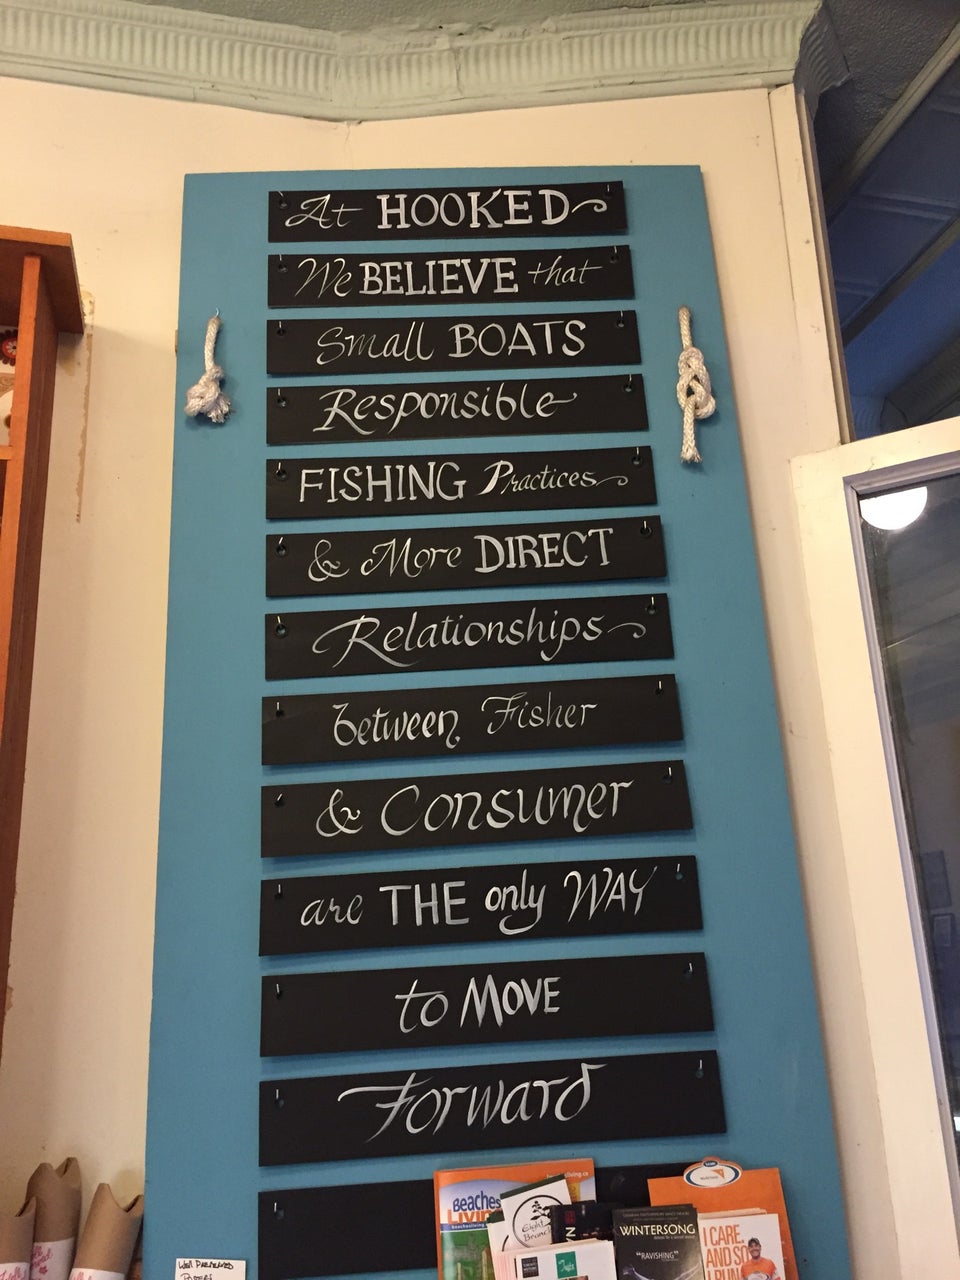 At HOOKED
We BELIEVE that
Small BOATS
Responsible
FISHING Practices
& More DIRECT
Relationships
between Fisher
& Consumer
are THE only WAY
to MOVE
Forward
Beaches
Living
WINTERSONG
"RAVISHING"
I CARE,
AND SO
I RUN
WELL PRESERVED